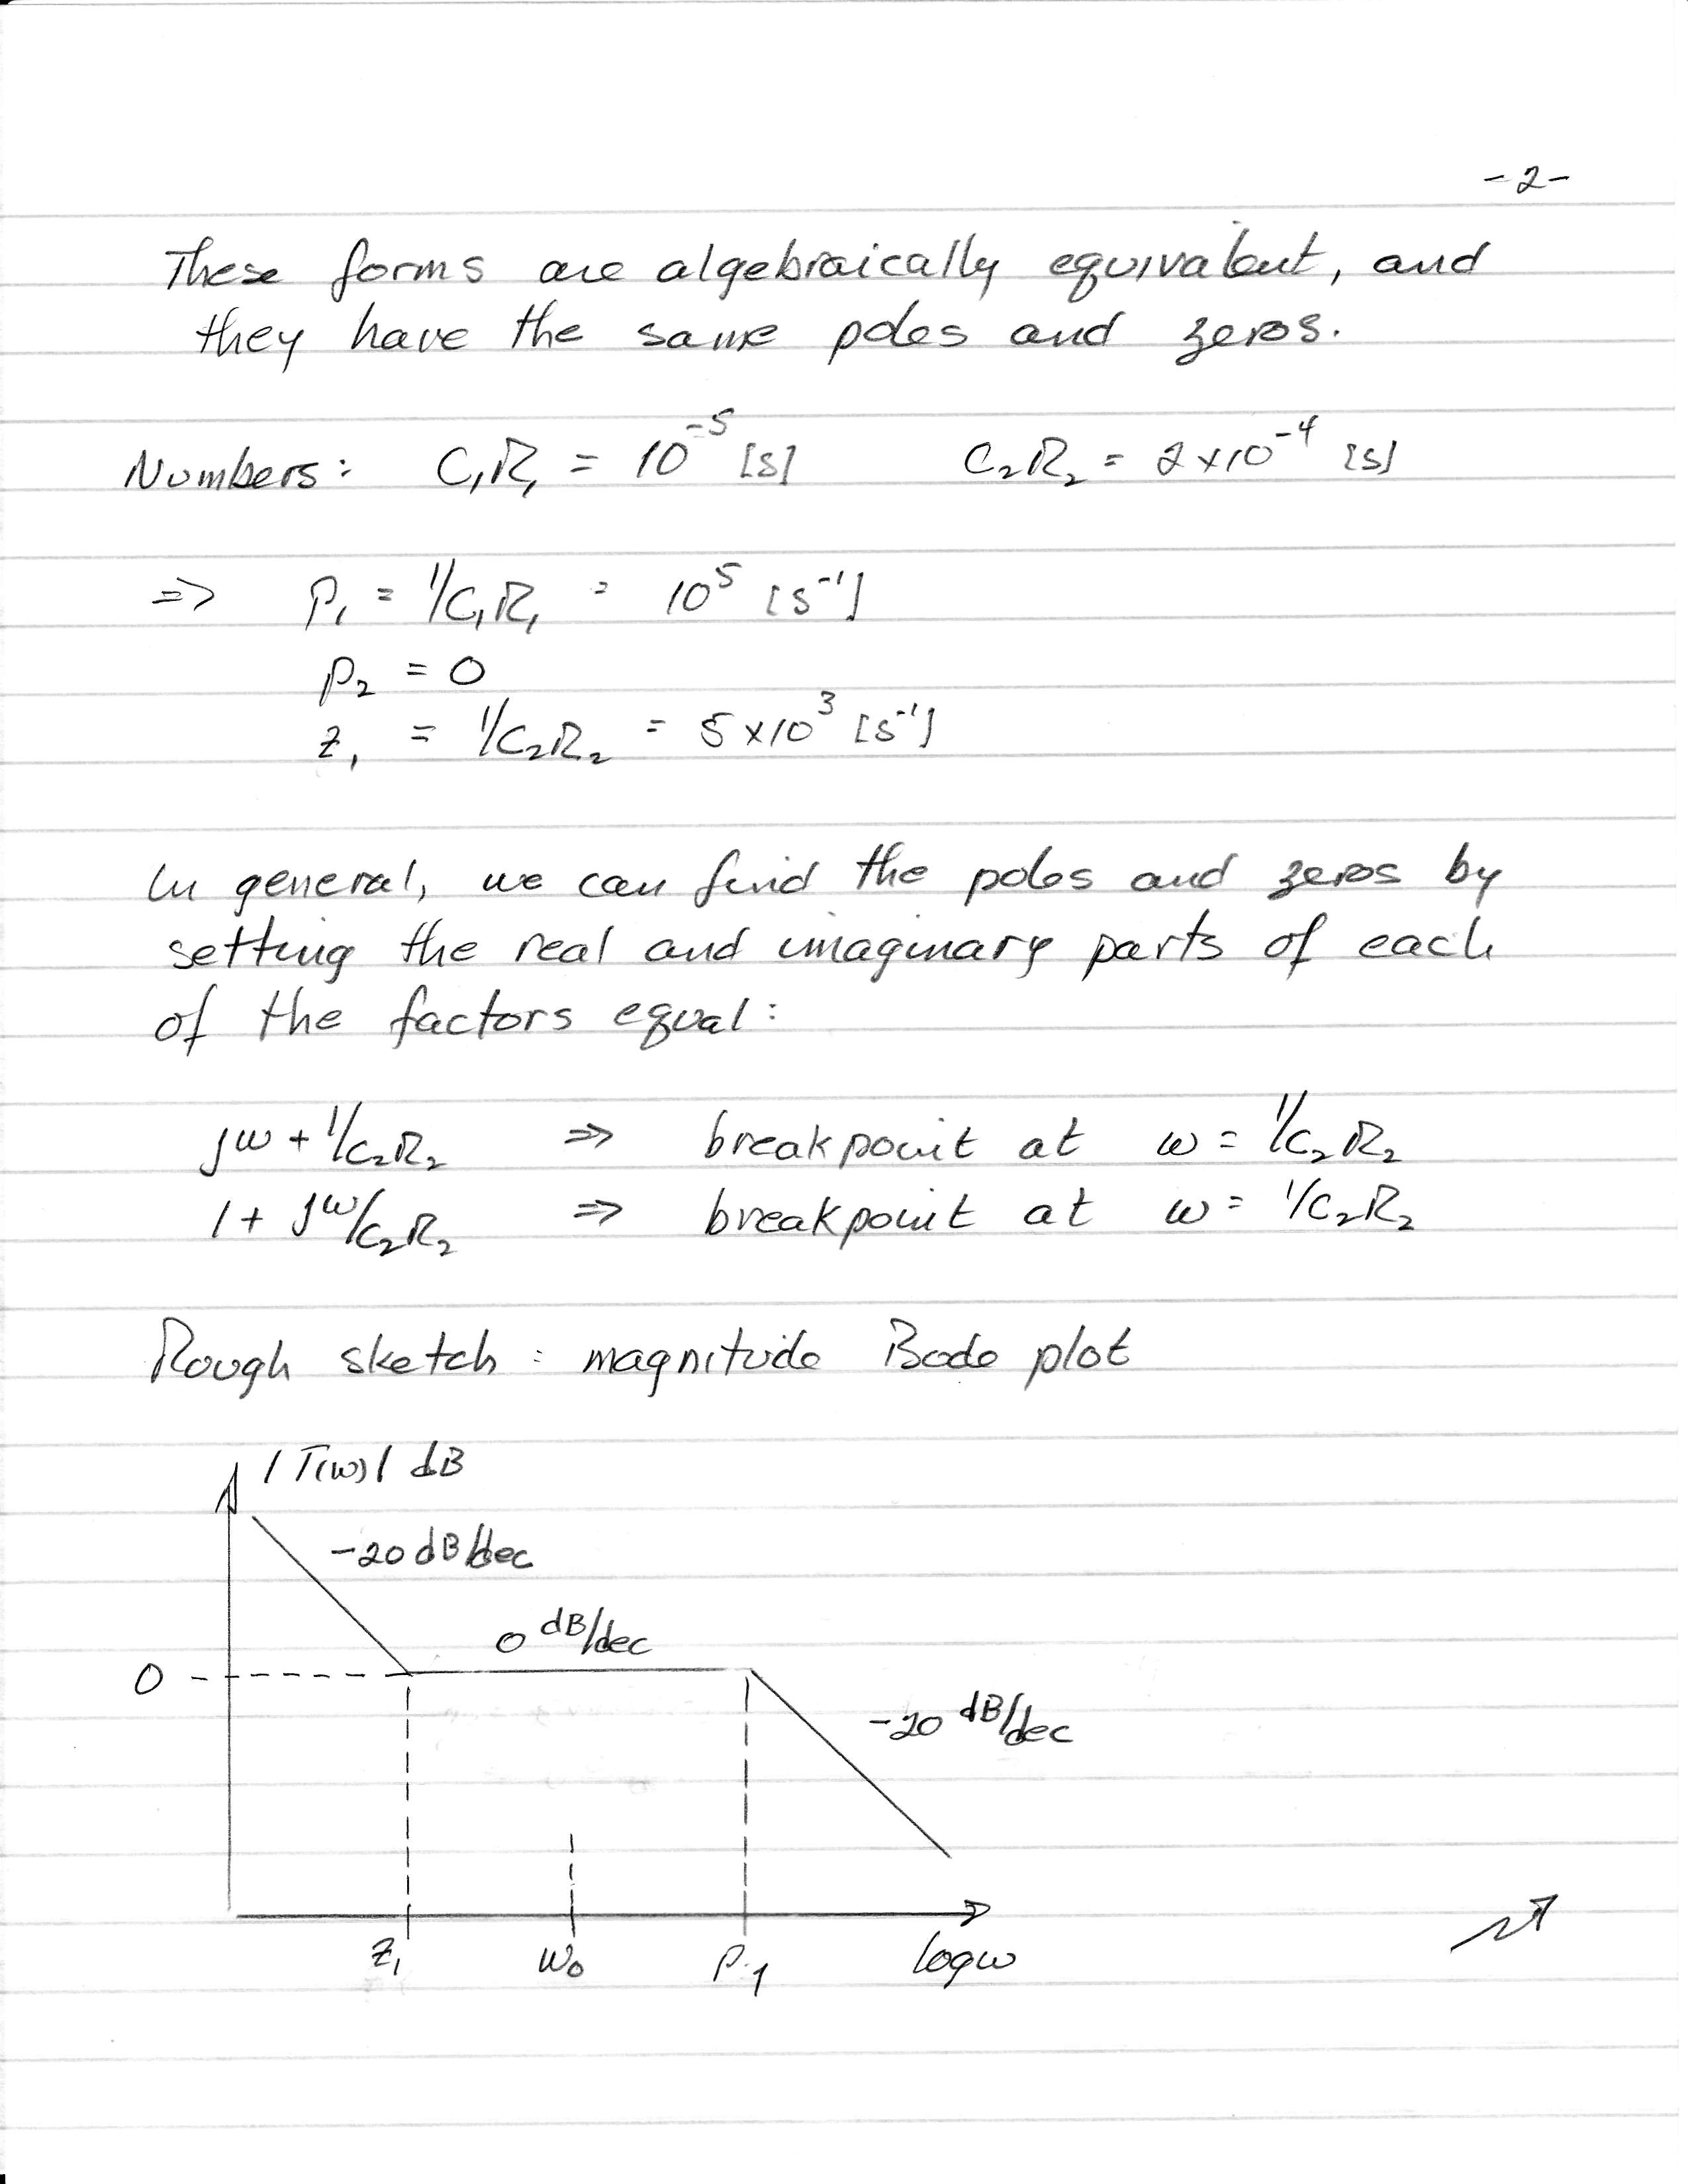 -2-
These forms are algebraically equivalent, and
they have the same poles and zeros.
Numbers: C₁R₁ = 10⁻⁵ [s] C₂R₂ = 2×10⁻⁴ [s]
=> p₁ = 1/C₁R₁ = 10⁵ [s⁻¹]
p₂ = 0
z₁ = 1/C₂R₂ = 5×10³ [s⁻¹]
In general, we can find the poles and zeros by
setting the real and imaginary parts of each
of the factors equal:
jω + 1/C₂R₂ => breakpoint at ω = 1/C₂R₂
1 + jω/C₂R₂ => breakpoint at ω = 1/C₂R₂
Rough sketch: magnitude Bode plot
|T(ω)| dB
-20 dB/dec
0 dB/dec
0
-20 dB/dec
z₁ ω₀ p₁ log ω